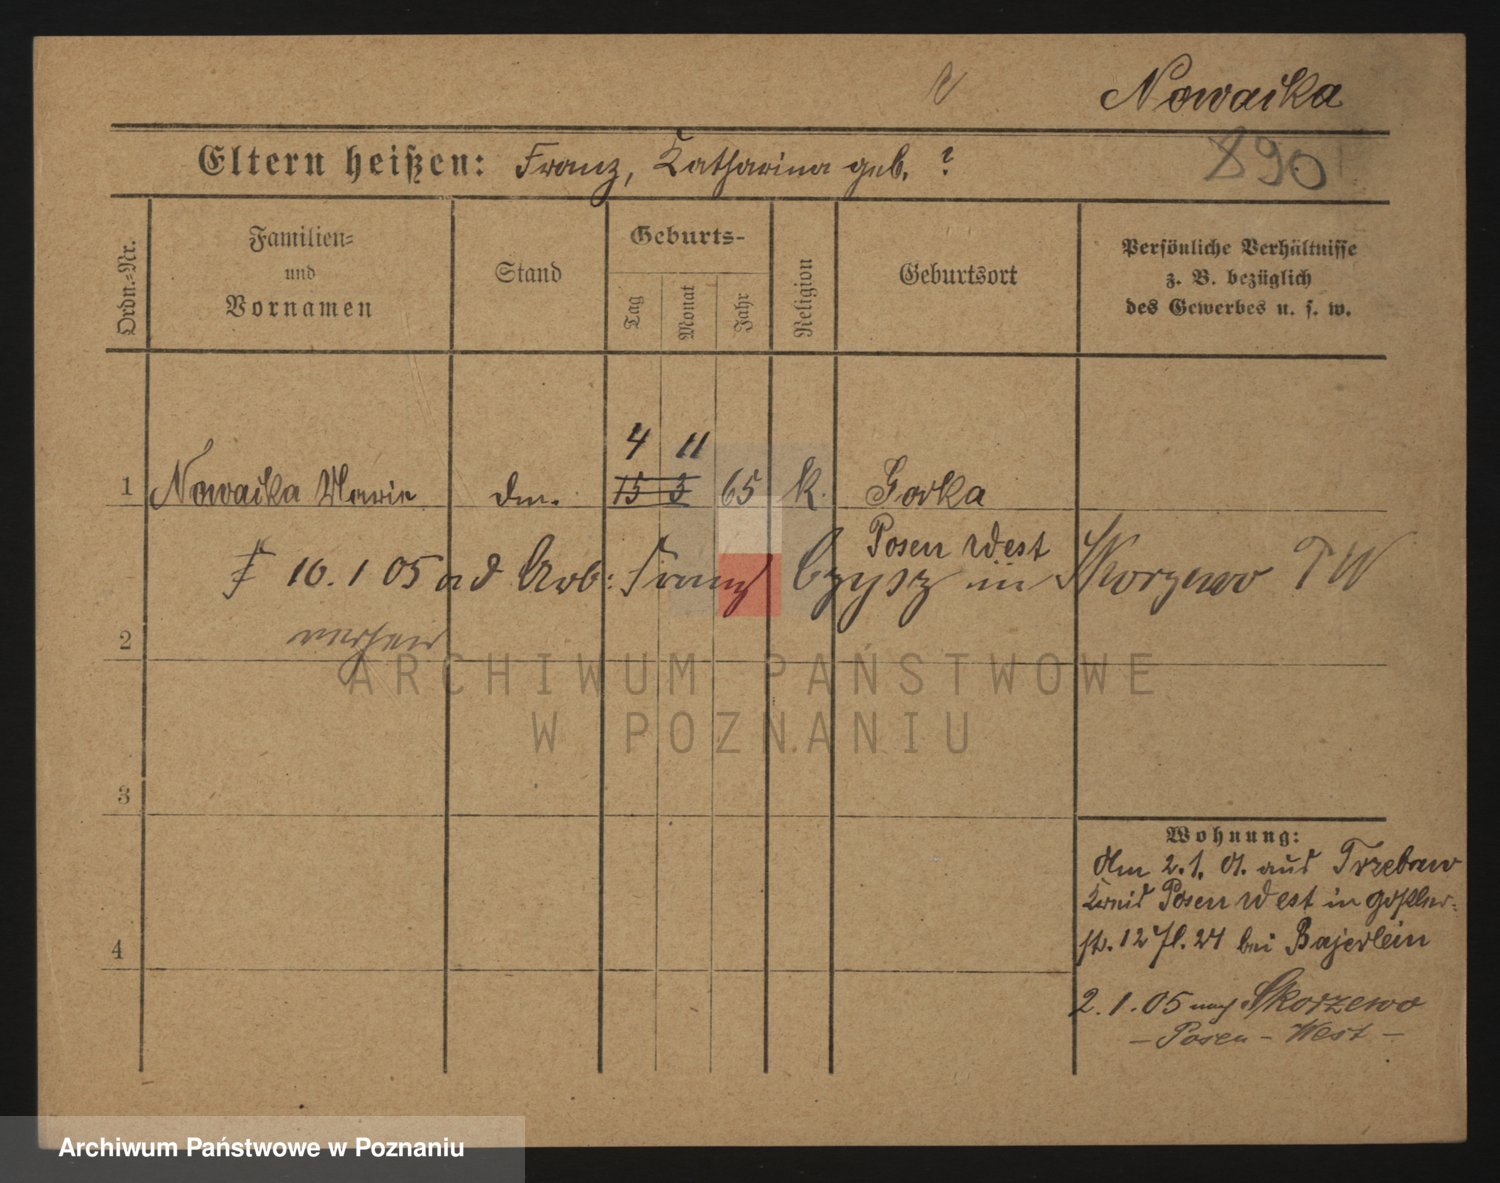 Nowacka
890
Eltern heißen: Franz, Katharina geb. ?
Ordn.-Nr.
Familien-
und
Vornamen
Stand
Geburts-
Tag
Monat
Jahr
Religion
Geburtsort
Persönliche Verhältnisse
z. B. bezüglich
des Gewerbes u. s. w.
4 11
1 Nowacka Marie 15 3 65 k. Gorka
Posen West
10. 1 05 Arb: Franz Czysz in Skorzewo PW
2
3
4
Wohnung:
Am 2. 1. 01. aus Trzebaw
Kreis Posen West in
str. 12 bei Bajerlein
2. 1. 05 nach Skorzewo
– Posen – West –
ARCHIWUM PAŃSTWOWE
W POZNANIU
Archiwum Państwowe w Poznaniu